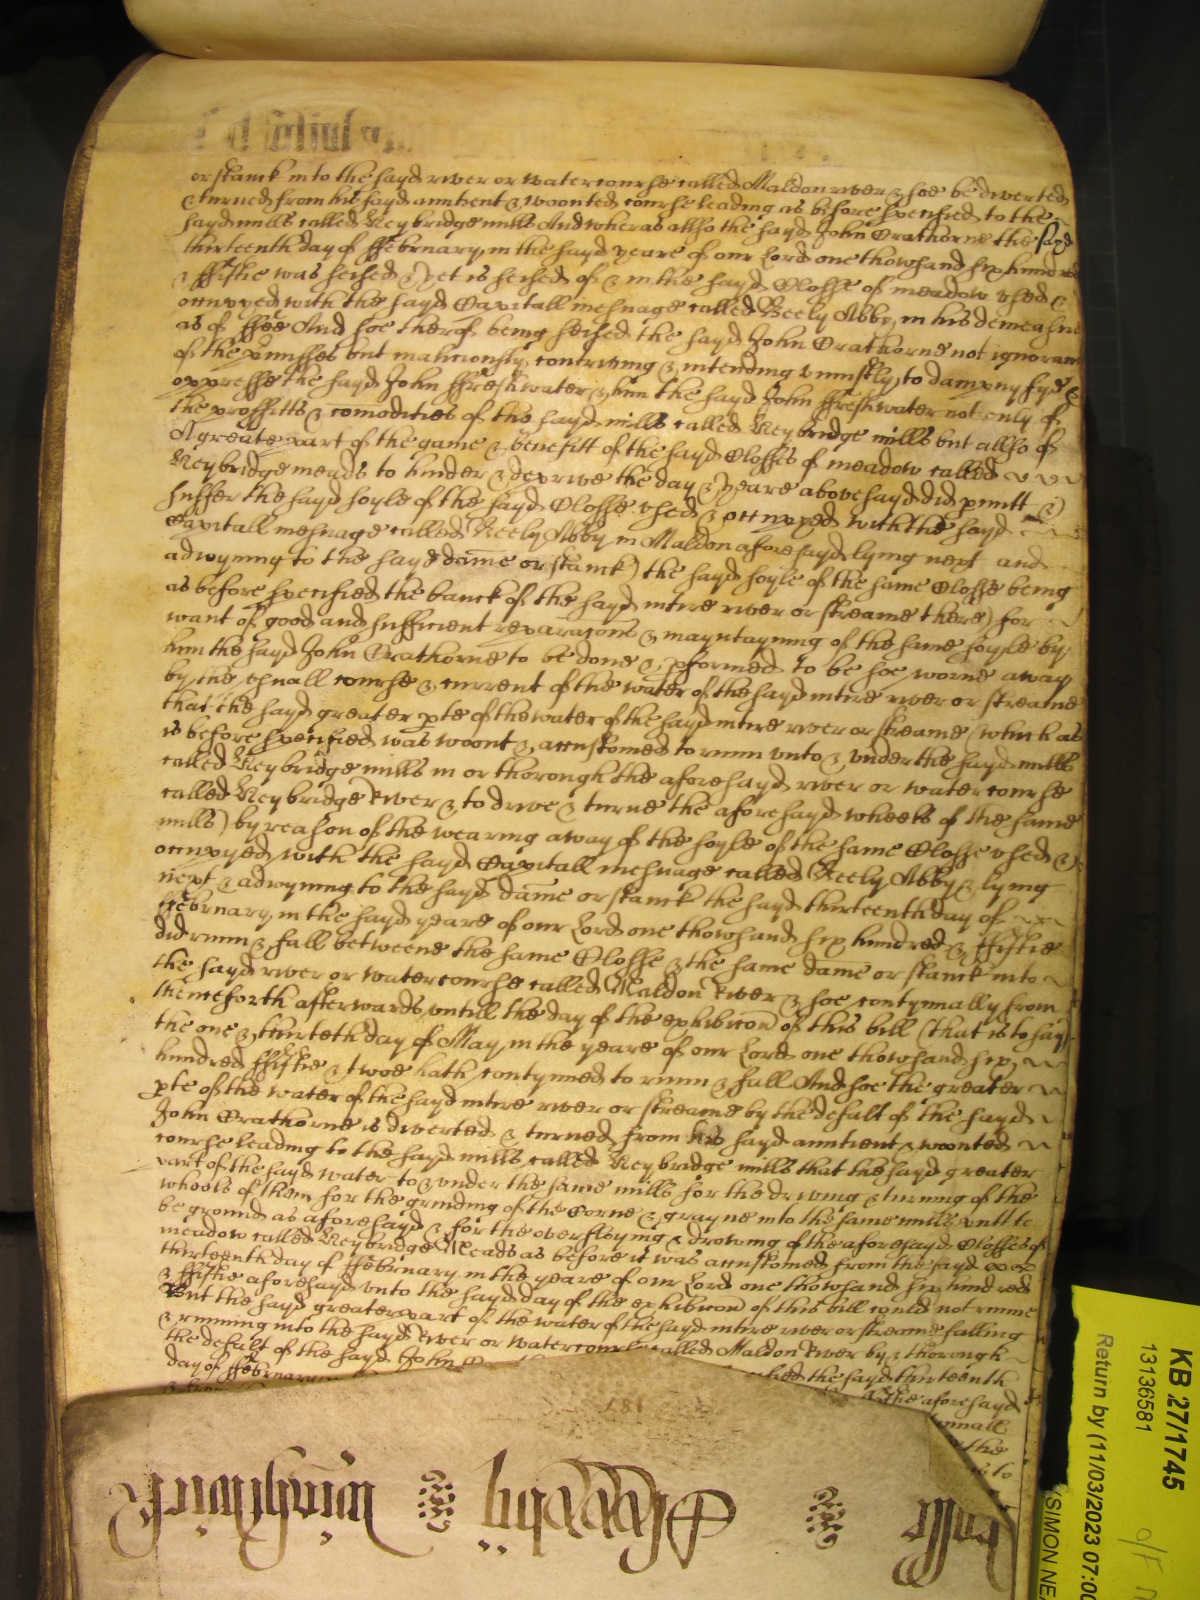 or stanck into the sayd river or watercourse called Maldon river & soe be diverted
& turned from his sayd auntient & woonted course leading as before specified to the
sayd mills called Heybridge mills And whereas allso the sayd John Crathorne the sayd
thirteenth day of ffebruary in the sayd yeare of our Lord one thowsand six hundred
& ffiftie was seised & yet is seised of & in the sayd Closse of meadow used &
occupyed with the sayd Capitall mesuage called Beely Abby in his demeasne
as of ffee And soe therof being seised the sayd John Crathorne not ignorant
of the pmisses but maliciously contriving & intending uniustly to dampnyfye &
oppresse the sayd John ffreshwater & him the sayd John ffreshwater not only of
the proffitts & comodities of the sayd mills called Heybridge mills but allso of
A greate part of the gaine & benefitt of the sayd Closses of meadow called
Heybridge meads to hinder & deprive the day & yeare abovesayd did pmitt &
suffer the sayd soyle of the sayd Closse used & occupyed with the sayd
Capitall mesuage called Beely Abby in Maldon aforesayd lying next and
adioyning to the sayd dame or stanck) the sayd soyle of the same Closse being
as before specified the banck of the sayd intire river or streame there) for
want of good and sufficient reparacons & mayntayning of the same soyle by
him the sayd John Crathorne to be done & pformed to be soe worne away
by the usuall course & current of the water of the sayd intire river or streame
that the sayd greater pte of the water of the sayd intire river or streame (which as
is before specified was woont & accustomed to runn unto & under the sayd mills
called Heybridge mills in or thorough the aforesayd river or watercourse
called Heybridge River & to drive & turne the aforesayd wheels of the same
mills) by reason of the wearing away of the soyle of the same Closse used &
occupyed with the sayd Capitall mesuage called Beely Abby & lying
next & adioyning to the sayd dame or stanck the sayd thirteenth day of
ffebruary in the sayd yeare of our Lord one thowsand six hundred & ffiftie
did runn & fall betweene the same Closse & the same dame or stanck into
the sayd river or watercourse called Maldon River & soe contynually from
thenceforth afterwards untill the day of the exhibicon of this bill (that is to say)
the one & thirteth day of May in the yeare of our Lord one thowsand six
hundred ffiftie & twoe hath contynued to runn & fall And soe the greater
pte of the water of the sayd intire river or streame by the defalt of the sayd
John Crathorne is diverted & turned from his sayd auntient & woonted
course leading to the sayd mills called Heybridge mills that the sayd greater
part of the sayd water to & under the same mills for the driving & turning of the
wheels of them for the grinding of the Corne & grayne into the same mills putt to
be ground as aforesayd & for the overflowing & drowing of the aforesayd Closses of
meadow called Heybridge Meads as before it was accustomed from the sayd
thirteenth day of ffebruary in the yeare of our Lord one thowsand six hundred
& ffiftie aforesayd unto the sayd day of the exhibicon of this bill could not runne
But the sayd greater part of the water of the sayd intire river or streame falling
& running into the sayd River or watercourse called Maldon River by & thorough
the defalt of the sayd John the sayd thirteenth
day of ffebruary the aforesayd
the
to
KB 27/1745
13136581
Return by (11/03/2023 07:00
SIMON NEA